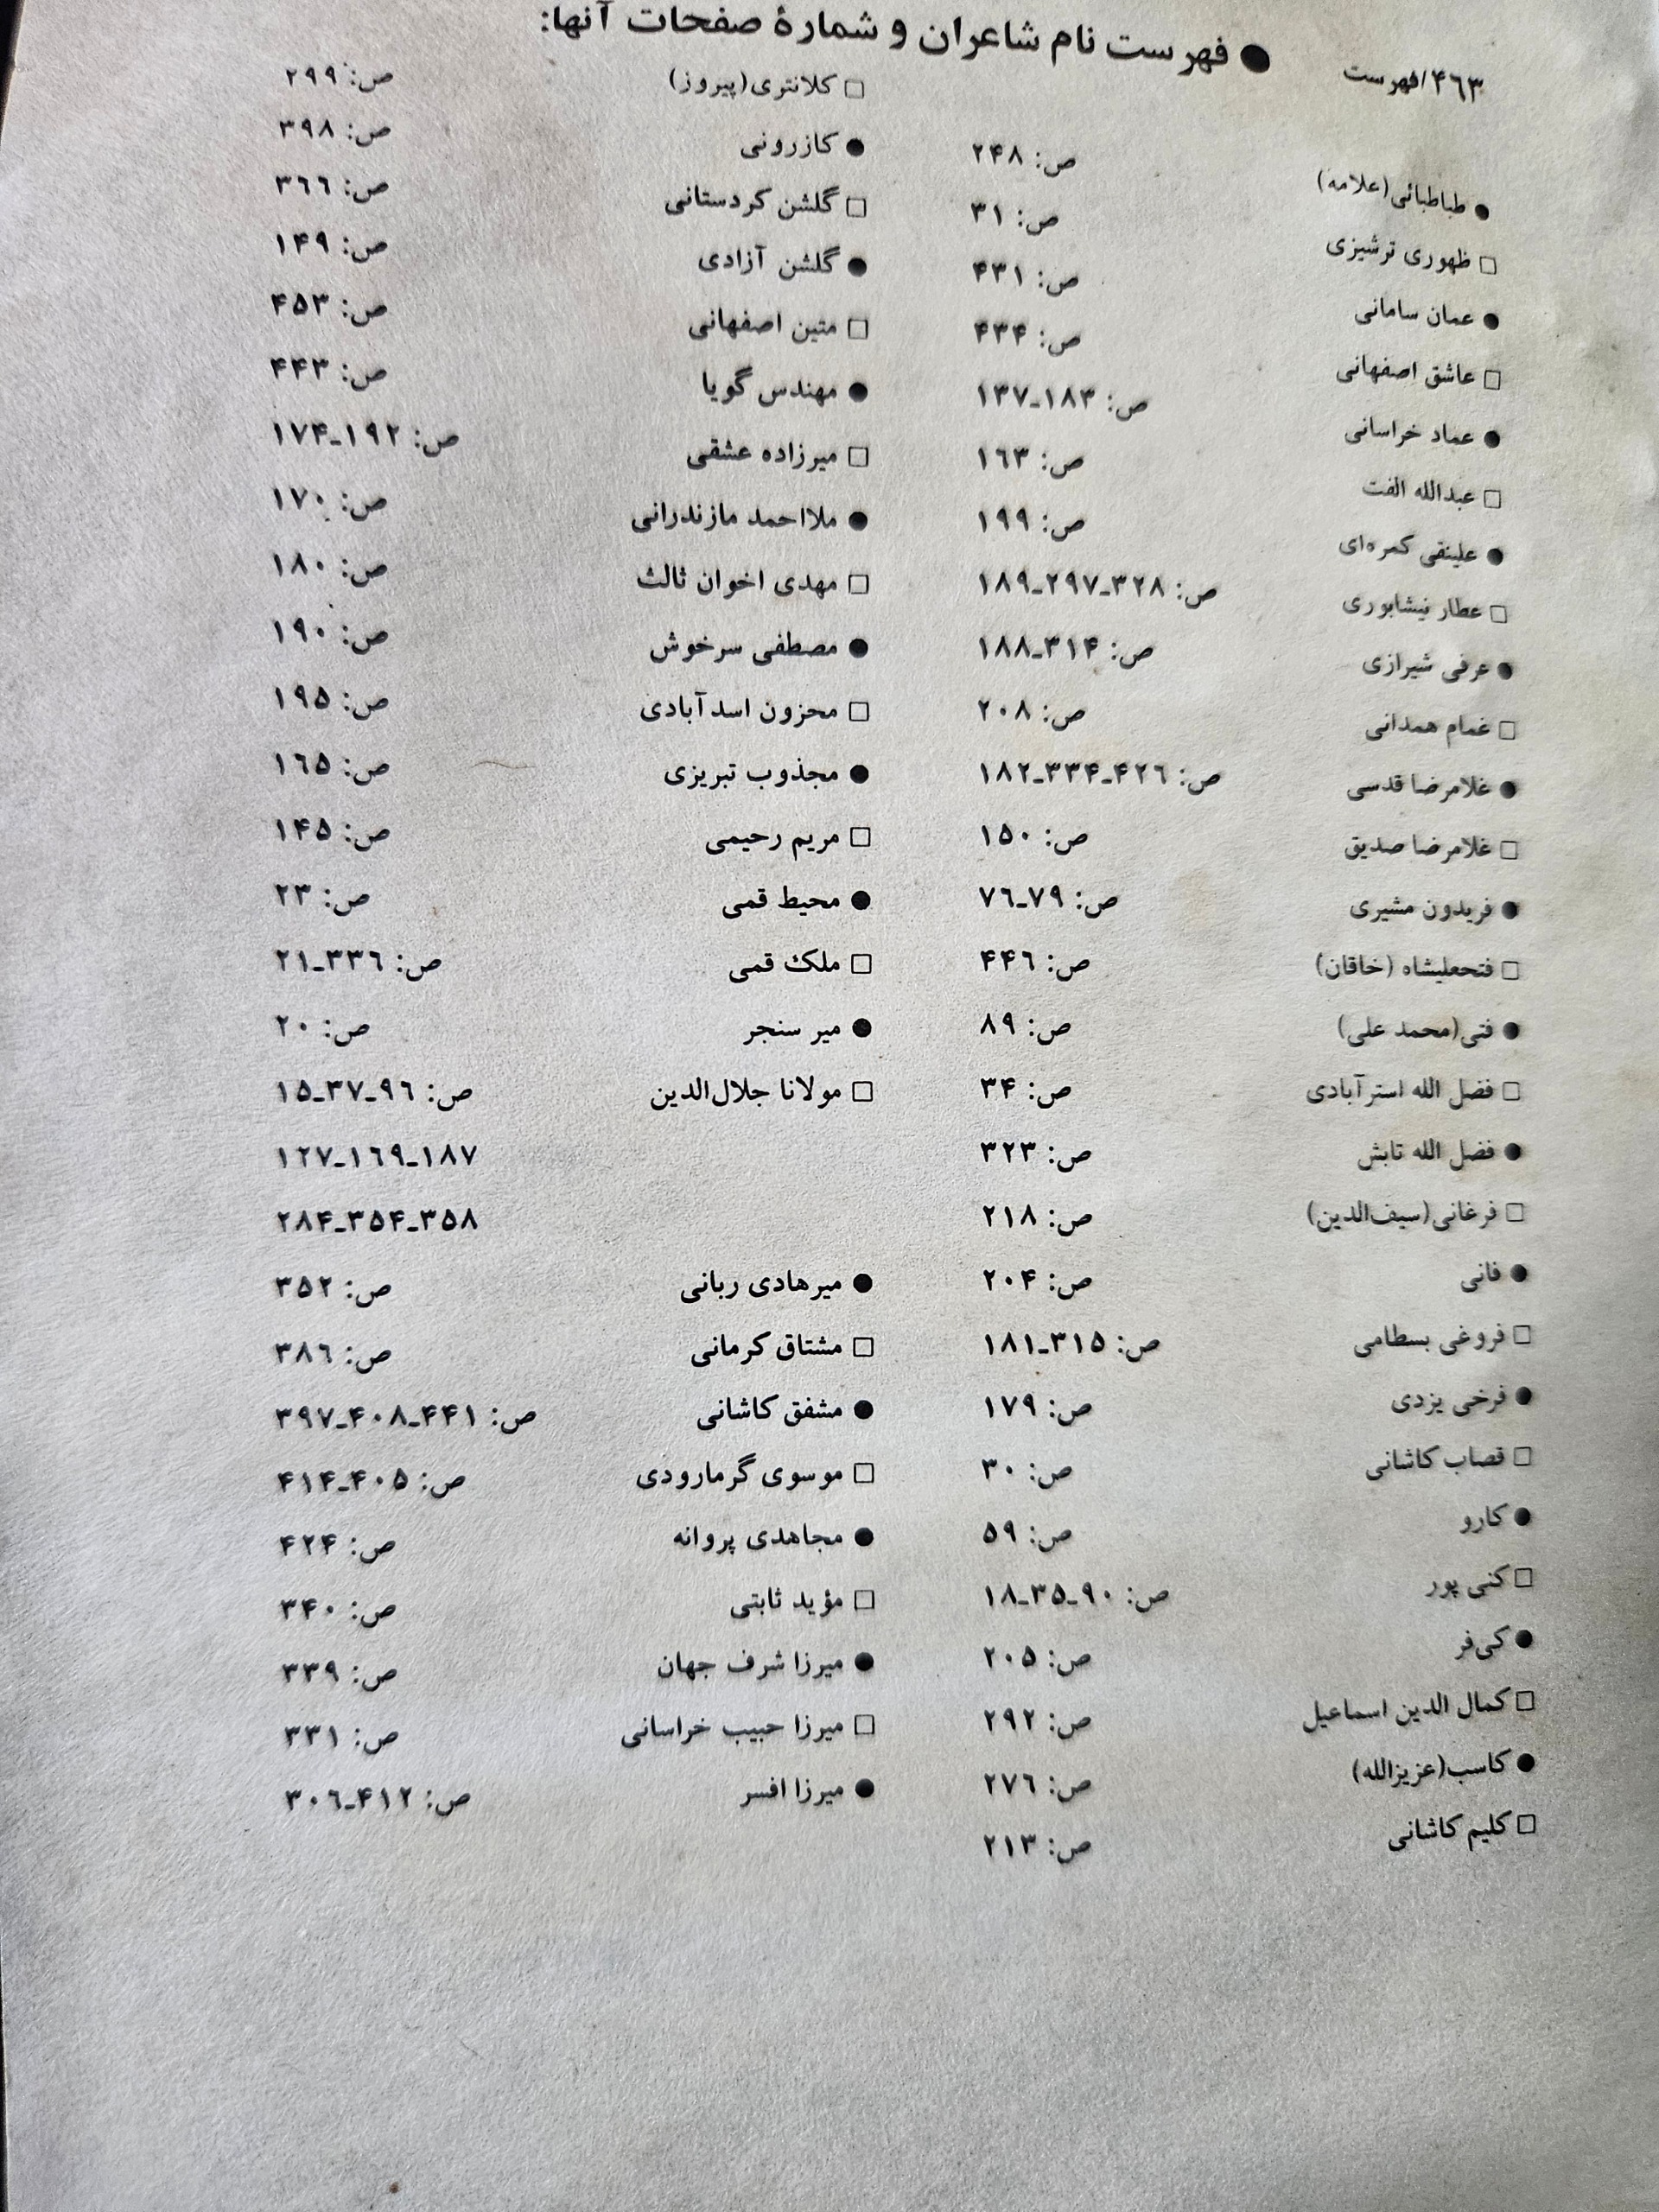 ۴۶۳/فهرست
● فهرست نام شاعران و شمارهٔ صفحات آنها:
● طباطبائی(علامه) ص: ۲۴۸
□ ظهوری ترشیزی ص: ۳۱
● عمان سامانی ص: ۴۳۱
□ عاشق اصفهانی ص: ۴۳۴
● عماد خراسانی ص: ۱۸۳-۱۳۷
□ عبدالله الفت ص: ۱۶۳
● علینقی کمره‌ای ص: ۱۹۹
□ عطار نیشابوری ص: ۳۲۸-۲۹۷-۱۸۹
● عرفی شیرازی ص: ۳۱۴-۱۸۸
□ غمام همدانی ص: ۲۰۸
● غلامرضا قدسی ص: ۴۲۶-۳۳۴-۱۸۲
□ غلامرضا صدیق ص: ۱۵۰
● فریدون مشیری ص: ۷۹-۷۶
□ فتحعلیشاه (خاقان) ص: ۴۴۶
● فتی(محمد علی) ص: ۸۹
□ فضل الله استرآبادی ص: ۳۴
● فضل الله تابش ص: ۳۲۳
□ فرغانی(سیف‌الدین) ص: ۲۱۸
● فانی ص: ۲۰۴
□ فروغی بسطامی ص: ۳۱۵-۱۸۱
● فرخی یزدی ص: ۱۷۹
□ قصاب کاشانی ص: ۳۰
● کارو ص: ۵۹
□ کنی پور ص: ۹۰-۳۵-۱۸
● کی‌فر ص: ۲۰۵
□ کمال الدین اسماعیل ص: ۲۹۲
● کاسب(عزیزالله) ص: ۲۷۶
□ کلیم کاشانی ص: ۲۱۳
□ کلانتری(پیروز) ص: ۲۹۹
● کازرونی ص: ۳۹۸
□ گلشن کردستانی ص: ۳۶۶
● گلشن آزادی ص: ۱۴۹
□ متین اصفهانی ص: ۴۵۳
● مهندس گویا ص: ۴۴۳
□ میرزاده عشقی ص: ۱۹۲-۱۷۴
● ملااحمد مازندرانی ص: ۱۷۰
□ مهدی اخوان ثالث ص: ۱۸۰
● مصطفی سرخوش ص: ۱۹۰
□ محزون اسدآبادی ص: ۱۹۵
● مجذوب تبریزی ص: ۱۶۵
□ مریم رحیمی ص: ۱۴۵
● محیط قمی ص: ۲۳
□ ملک قمی ص: ۳۳۶-۲۱
● میر سنجر ص: ۲۰
□ مولانا جلال‌الدین ص: ۹۶-۳۷-۱۵
۱۸۷-۱۶۹-۱۲۷
۳۵۸-۳۵۴-۲۸۴
● میرهادی ربانی ص: ۳۵۲
□ مشتاق کرمانی ص: ۳۸۶
● مشفق کاشانی ص: ۴۴۱-۴۰۸-۳۹۷
□ موسوی گرمارودی ص: ۴۰۵-۴۱۴
● مجاهدی پروانه ص: ۴۲۴
□ مؤید ثابتی ص: ۳۴۰
● میرزا شرف جهان ص: ۳۳۹
□ میرزا حبیب خراسانی ص: ۳۳۱
● میرزا افسر ص: ۴۱۲-۳۰۶